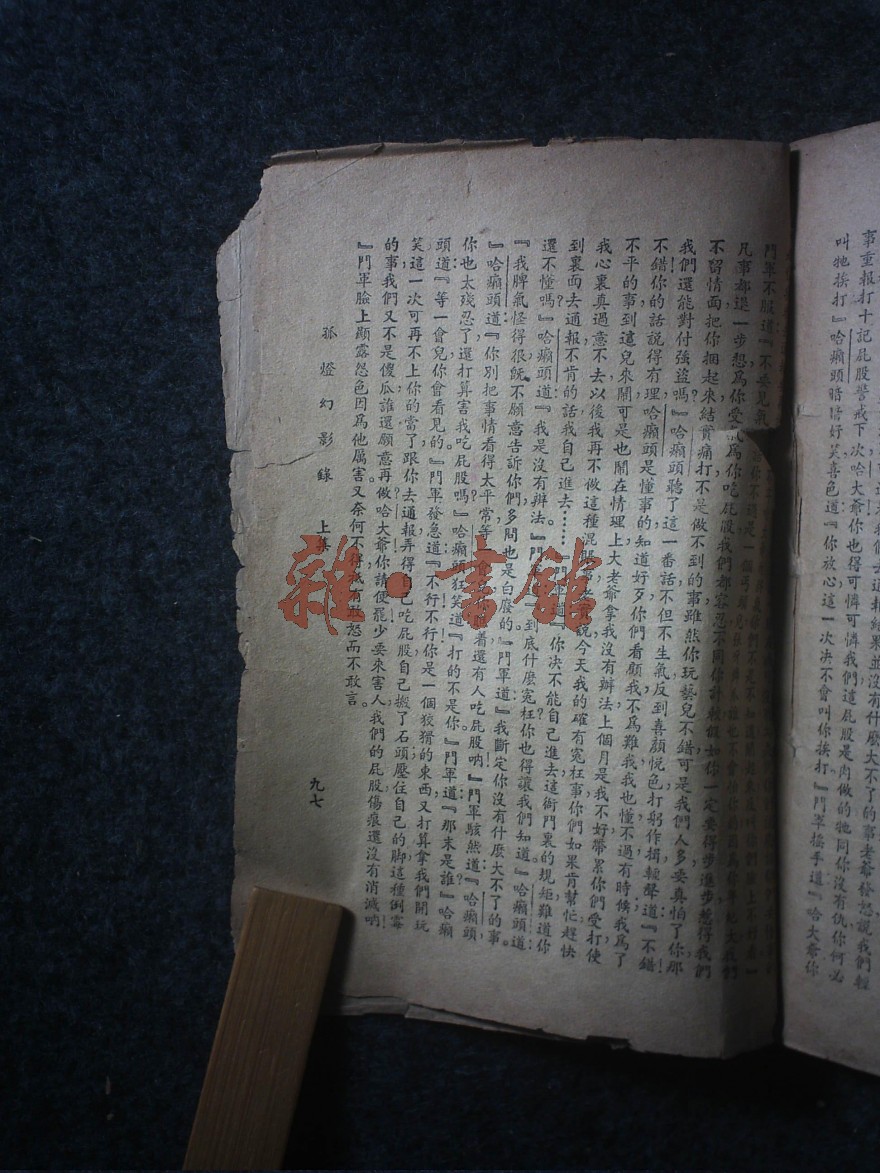 事重報打十記屁股警戒下次哈大爺你也得可憐可憐我們這屁股是肉做的牠同你沒有仇你何必
叫牠挨打』哈癩頭暗暗好笑喜色道『你放心這一次决不會叫你挨打』門軍搖手道『哈大爺你
門軍不服道『不要見氣
凡事都退一步想爲你受氣爲你吃屁股我們都容忍不同你計較假如你一定要得步進步惹得我們
不留情面把你捆起來結實痛打不是做不到的事雖然你玩藝兒不錯可是我們人多妄真怕了你那
我們還能對付強盜嗎』哈癩頭聽了這一番話不但不生氣反到喜顏悅色打躬作揖輭聲道『不錯
不錯你的話說得有理哈癩頭是懂事的知道好歹你們看顧我不爲難我我也懂不過有時候我爲了
不平的事到這兒來鬧可是也鬧在情理上大老爺拿我沒有辦法上個月是我不好帶累你們受打使
我心裏真過意不去以後我再不做這種混賬事老實說今天我的確有冤枉事你們如果肯幫忙趕快
到裏面去通報不肯的話我自己進去……』門軍道『你决不能自己進去這衙門裏的規矩難道你
還不懂嗎』哈癩頭道『我是沒有辦法』門軍道『到底什麼冤枉你也得讓我們知道』哈癩頭道
『我脾氣怪得很旣不願意告訴你們多問也是白廢的』門軍道『我斷定你沒有什麼大不了的事。
』哈癩頭道『你別把事情看得太平常等一會兒說不着還有人吃屁股吶』門軍駭然道『哈癩頭
你也太殘忍了還打算害我吃屁股嗎』哈癩頭狂笑道『打的不是你』門軍道『那末是誰』哈癩
頭道『等一會兒你會看見的』門軍發急道『不行不行你是一個狡猾的東西又打算拿我們開玩
笑這一次可再不上你的當了跟你去通報弄得自己吃屁股自己搬了石頭壓住自己的脚這種倒霉
的事我們又不是傻瓜誰還願意再做哈大爺你請便罷少要來害人我們的屁股傷痕還沒有消滅吶
』門軍臉上顯露怨色因爲他厲害又奈何不得祇有敢怒而不敢言。
孤燈幻影錄 上集
九七
雜·書館